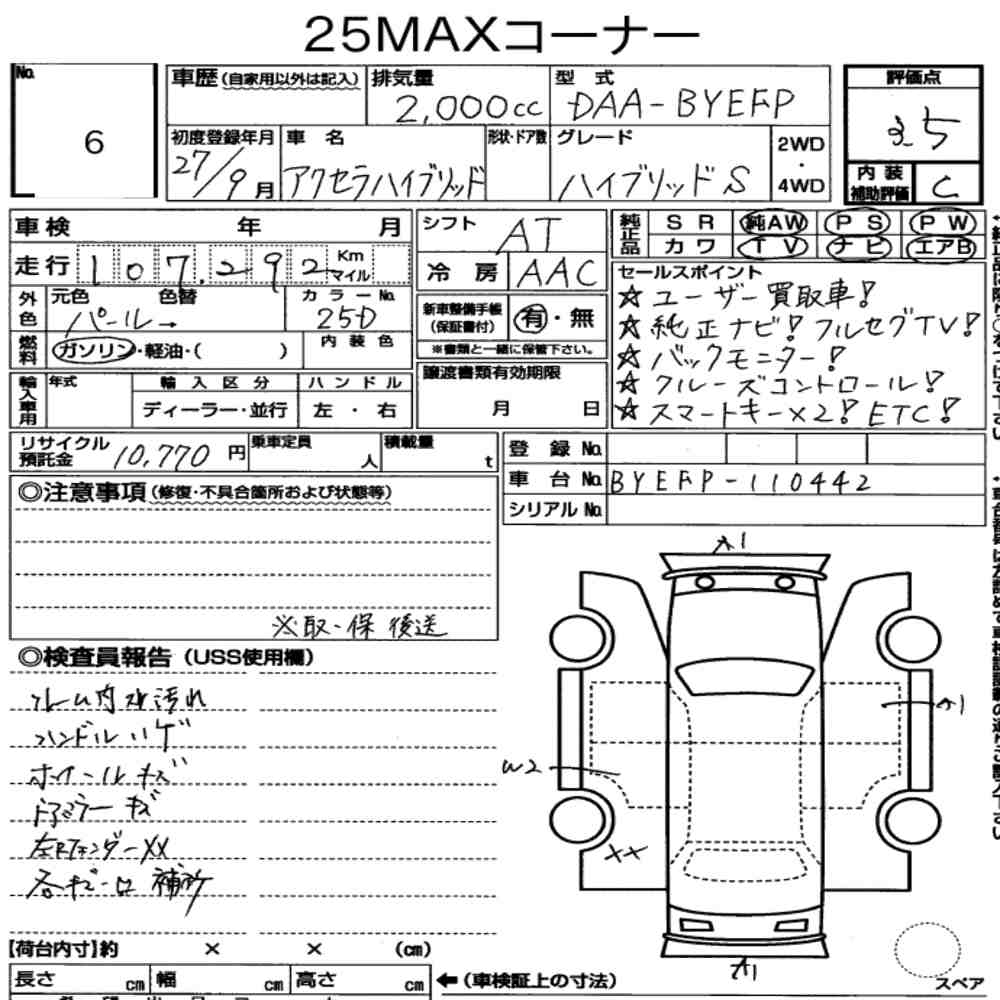 25MAXコーナー
No.
6
車歴(自家用以外は記入)
排気量
2,000cc
型 式
DAA-BYEFP
評価点
3.5
初度登録年月
27/9月
車 名
アクセラハイブリッド
形状・ドア数
グレード
ハイブリッドS
2WD
・
4WD
内 装
補助評価
C
車検 年 月
シフト
AT
純正品
SR 純AW PS PW
カワ TV ナビ エアB
走行 107,292 Km マイル
冷 房
AAC
セールスポイント
☆ユーザー買取車!
☆純正ナビ!フルセグTV!
☆バックモニター!
☆クルーズコントロール!
☆スマートキー×2! ETC!
外色
元色 色替
パール→
カラーNo.
25D
新車整備手帳
(保証書付)
有・無
※書類と一緒に保管下さい。
燃料
ガソリン・軽油・( )
内 装 色
輸入車用
年式
輸 入 区 分
ディーラー・並行
ハ ン ド ル
左 ・ 右
譲渡書類有効期限
月 日
リサイクル
預託金
10,770円
乗車定員
人
積載量
t
登 録 No.
車 台 No.
BYEFP-110442
シリアル No.
◎注意事項(修復・不具合箇所および状態等)
※取・保 後送
◎検査員報告(USS使用欄)
フレーム内サビ汚れ
ハンドルハゲ
ホイールキズ
ドアミラーキズ
左Rフェンダー XX
各キズ 補修
A1
A1
W2
XX
A1
【荷台内寸】約 × × (cm)
長さ cm
幅 cm
高さ cm
←(車検証上の寸法)
スペア